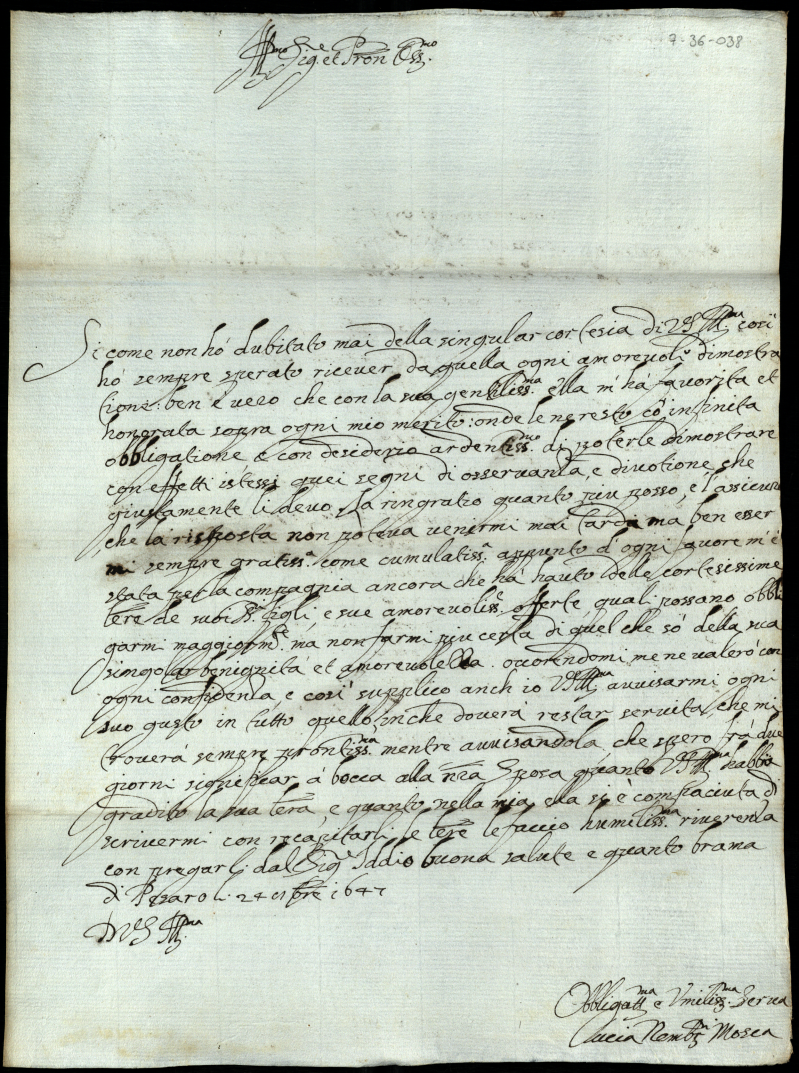 9-36-038
Ill.mo Sig.re et Pron Oss.mo
Si come non hó dubitato mai della singular cortesia di V.S. Ill.ma cosi
hó sempre sperato ricever da quella ogni amorevol.e dimostra
tione: ben é vero che con la sua gentiliss.ma ella m'há favorita et
honorata sopra ogni mio merito: onde le ne resto cõ infinita
obbligatione e con desiderio ardentiss.mo di poterle dimostrare
con effetti istessi quei segni di osservanza, e divotione, che
giustamente li devo, la ringratio quanto piu posso, e l'assicuro
che la risposta non poteva venirmi mai tarda ma ben esser
mi sempre gratiss.a come cumulatiss.a appunto d'ogni favore m'é
stata per la compagnia ancora che há hauto delle cortesissime
l'ere de suoi SS.ri figli e sue amorevoliss.e offerte quali possano obbli
garmi maggiorm.te, má non farmi piu certa di quel che só della sua
singolar benignitá et amorevolezza. occorendomi me ne valeró con
ogni confidenza e cosi supplico anch'io V.S. Ill.ma avvisarmi ogni
suo gusto in tutto quello, in che doverá restar servita, che mi
troverá sempre prontiss.ma mentre avvisandola, che spero frá due
giorni significar á bocca alla nr̃a Sposa quanto V.S. Ill.ma habbia
gradito la sua l'era, e quanto nella mia ella si é compiaciuta di
scrivermi con recapitarli le l'ere le faccio humiliss.a riverenza
con pregarli dal Sig.re Iddio buona salute e quanto brama
di Pesaro li 24 8bre 1647
D V.S. Ill.ma
Obbligatt.ma e Vmiliss.ma Serva
Lucia Mosca